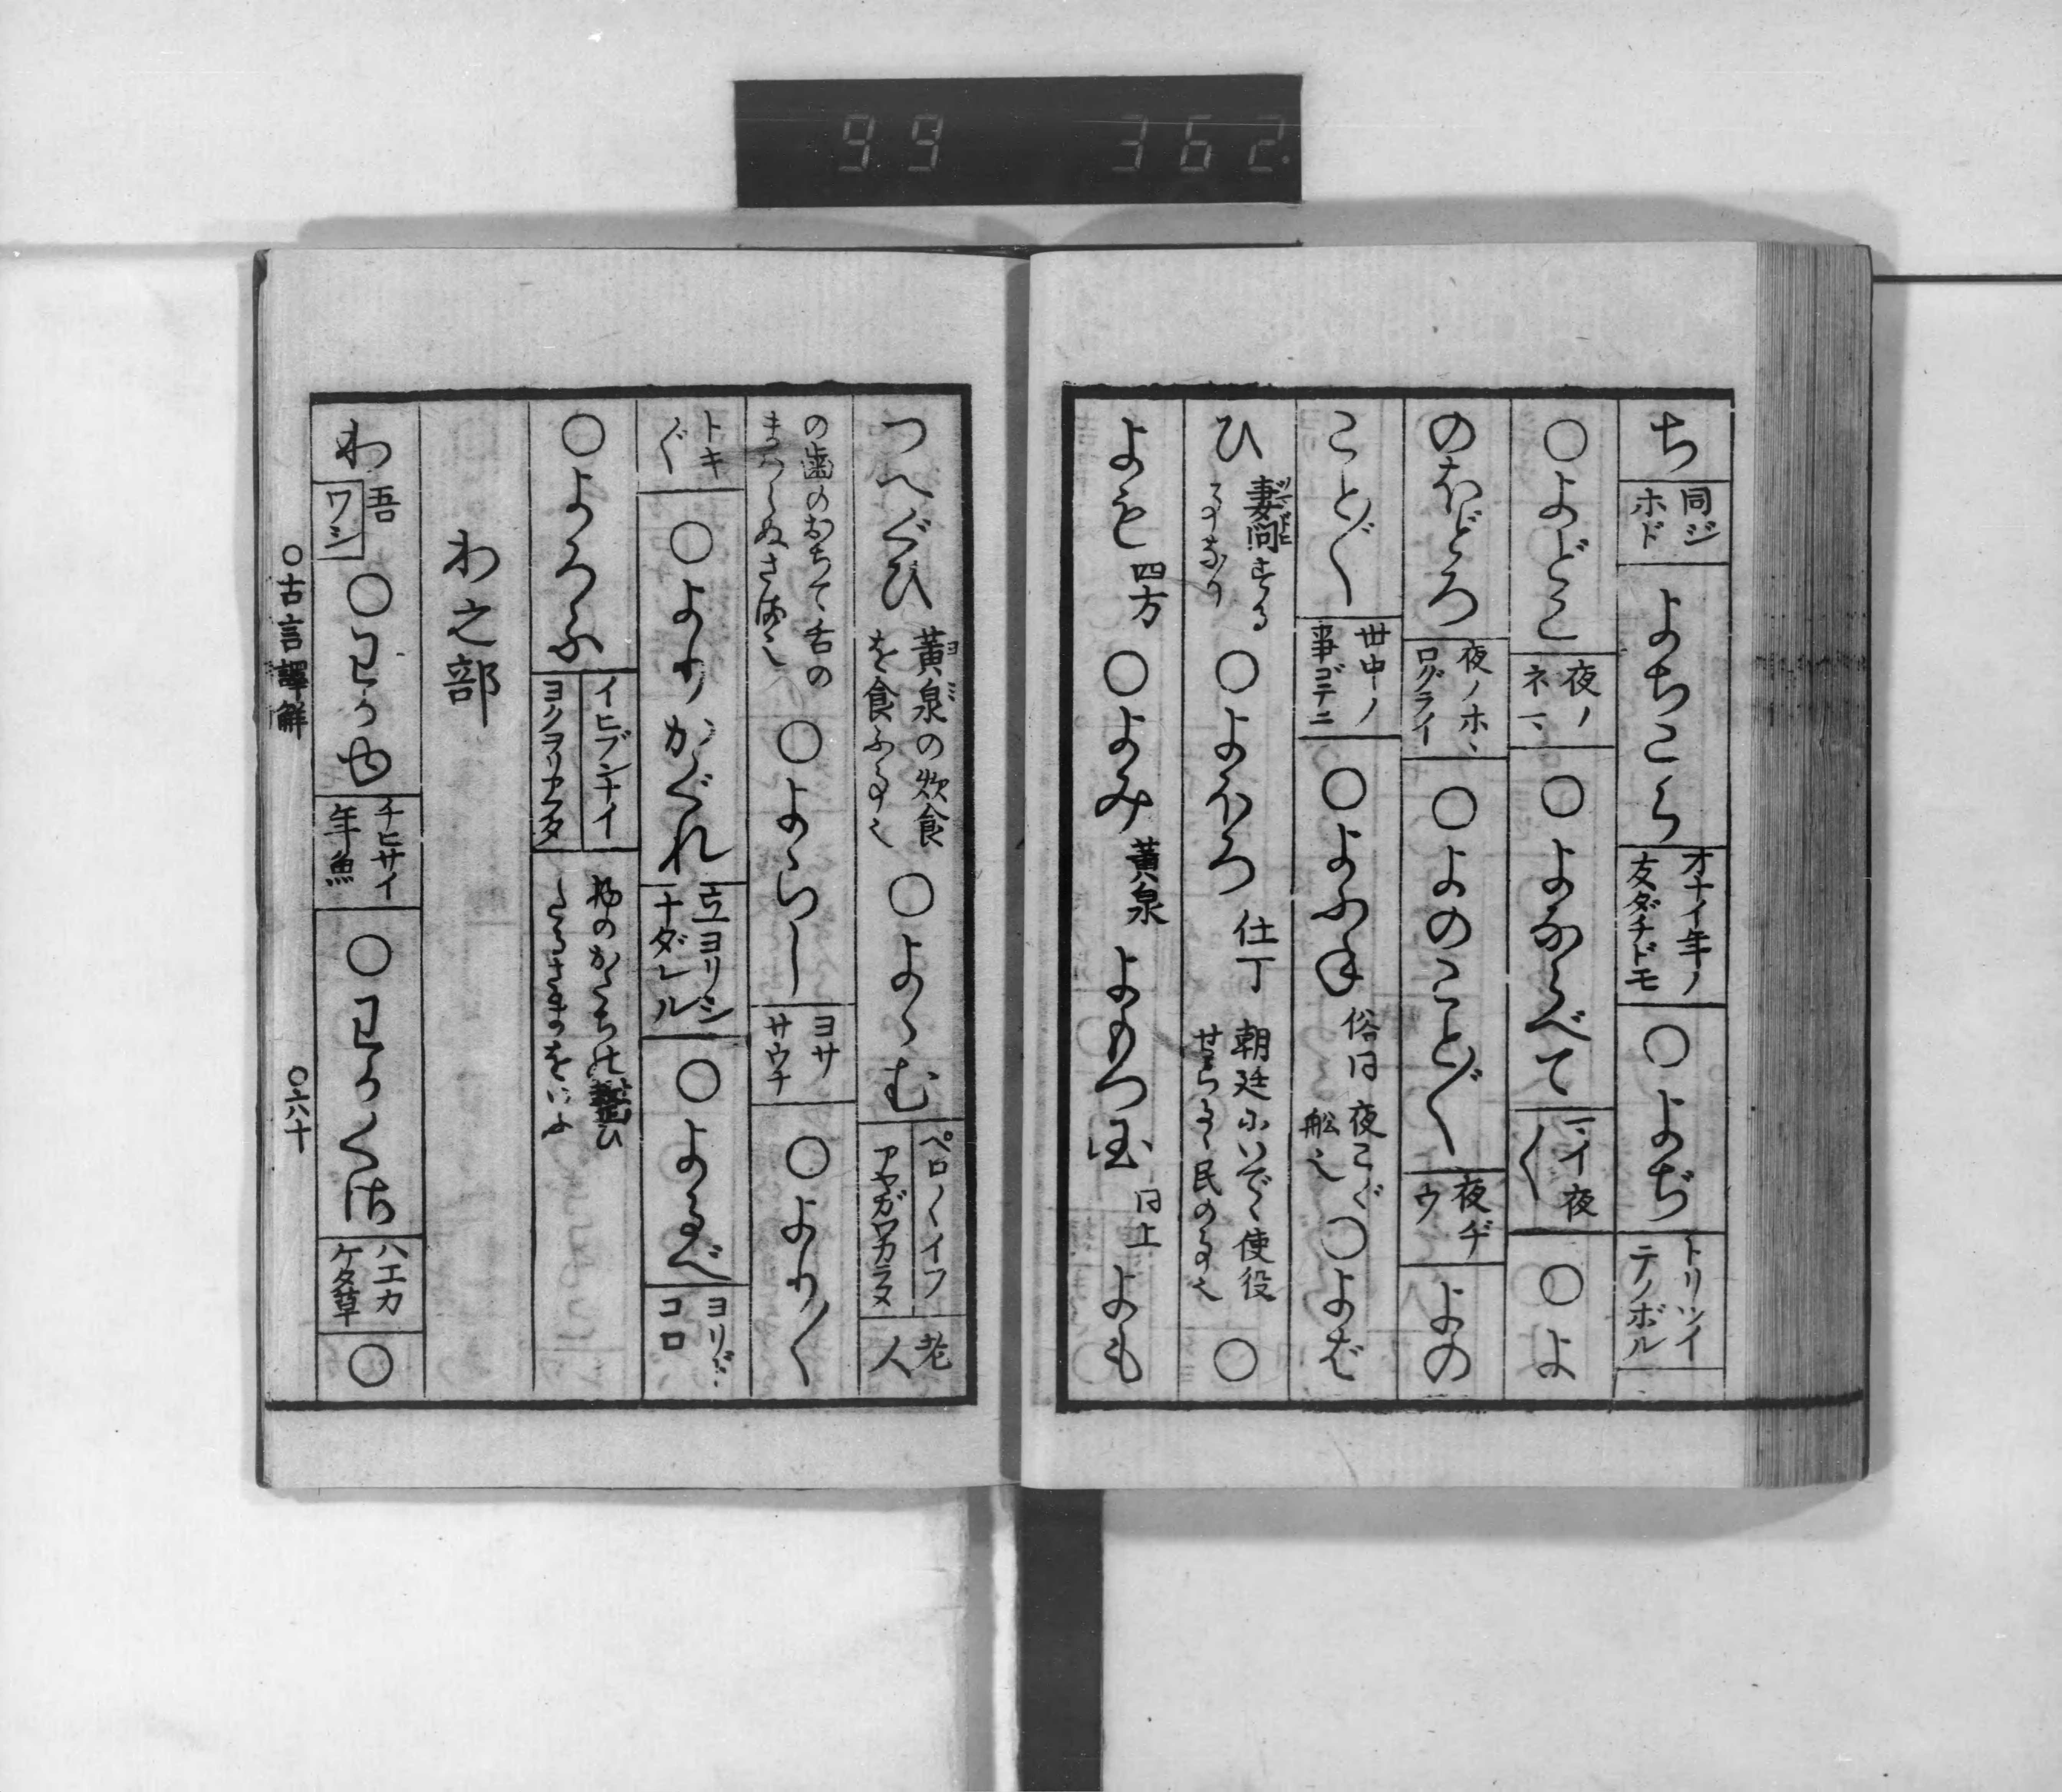 99 362
ち 同ジホド よちこら オナイ年ノ友ダチドモ ○よぢ トリツイテノボル
○よどこ 夜ノネマ ○よならべて マイ夜〱 ○よ
のほどろ 夜ノホヽログライ ○よのこと〲 夜ヂウ よの
こと〲 世中ノ事ゴテニ ○よふね 俗同 夜こぐ船也 ○よば
ひ 妻問する事なり ○よほろ 仕丁 朝廷にいでゝ使役せらるゝ民の事也 ○
よも 四方 ○よみ 黄泉 よもつ国 同上 よも
つへぐひ 黄泉の炊食を食ふ事也 ○よゝむ ペロ〱イフ アヤガワカラヌ 老人
の歯のおちて舌のまはらぬさま也 ○よゝらし ヨササウナ ○より〱
トキ〲 ○よりかぐれ 立ヨリシナダレル ○よるべ ヨリドコロ
○よろふ イヒブンナイ ヨクヨリアフタ 物のかたちの整ひたるさまをいふ
わ之部
わ 吾 ワシ ○わかゆ チヒサイ年魚 ○わかくさ ハエカケタ草 ○
○古言譯解 ○六十